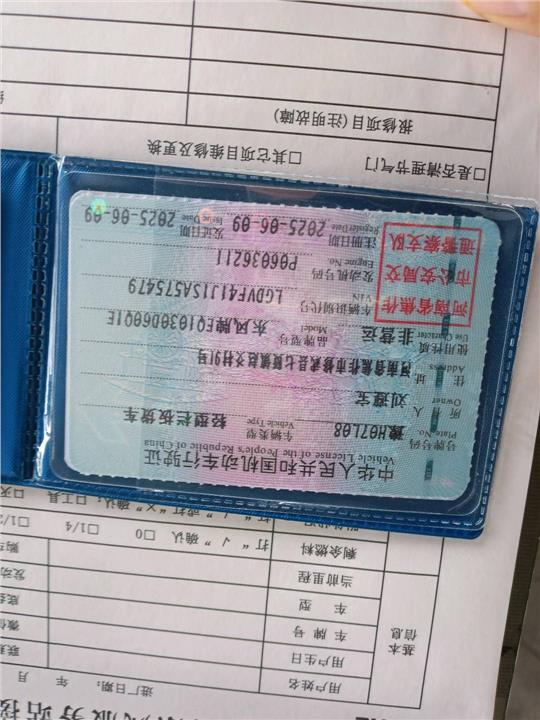 中华人民共和国机动车行驶证
Vehicle License of the People's Republic of China
号牌号码
Plate No.
豫H07L08
车辆类型
Vehicle Type
轻型栏板货车
所有人
Owner
住址
Address
使用性质
Use Character
非营运
品牌型号
Model
东风牌EQ1030D60Q1E
车辆识别代号
VIN
LGDVF41J1SA575479
发动机号码
Engine No.
P06036211
注册日期
Register Date
2025-06-09
发证日期
Issue Date
2025-06-09
河南省焦作
市公安局交
通警察支队
进厂日期: 年 月
用户姓名
用户生日
车牌号
车型
当前里程
基本
信息
剩余燃料
打“√”确认 □0 □1/4
□是否清理节气门
□其它项目维修及更换
报修项目(注明故障)